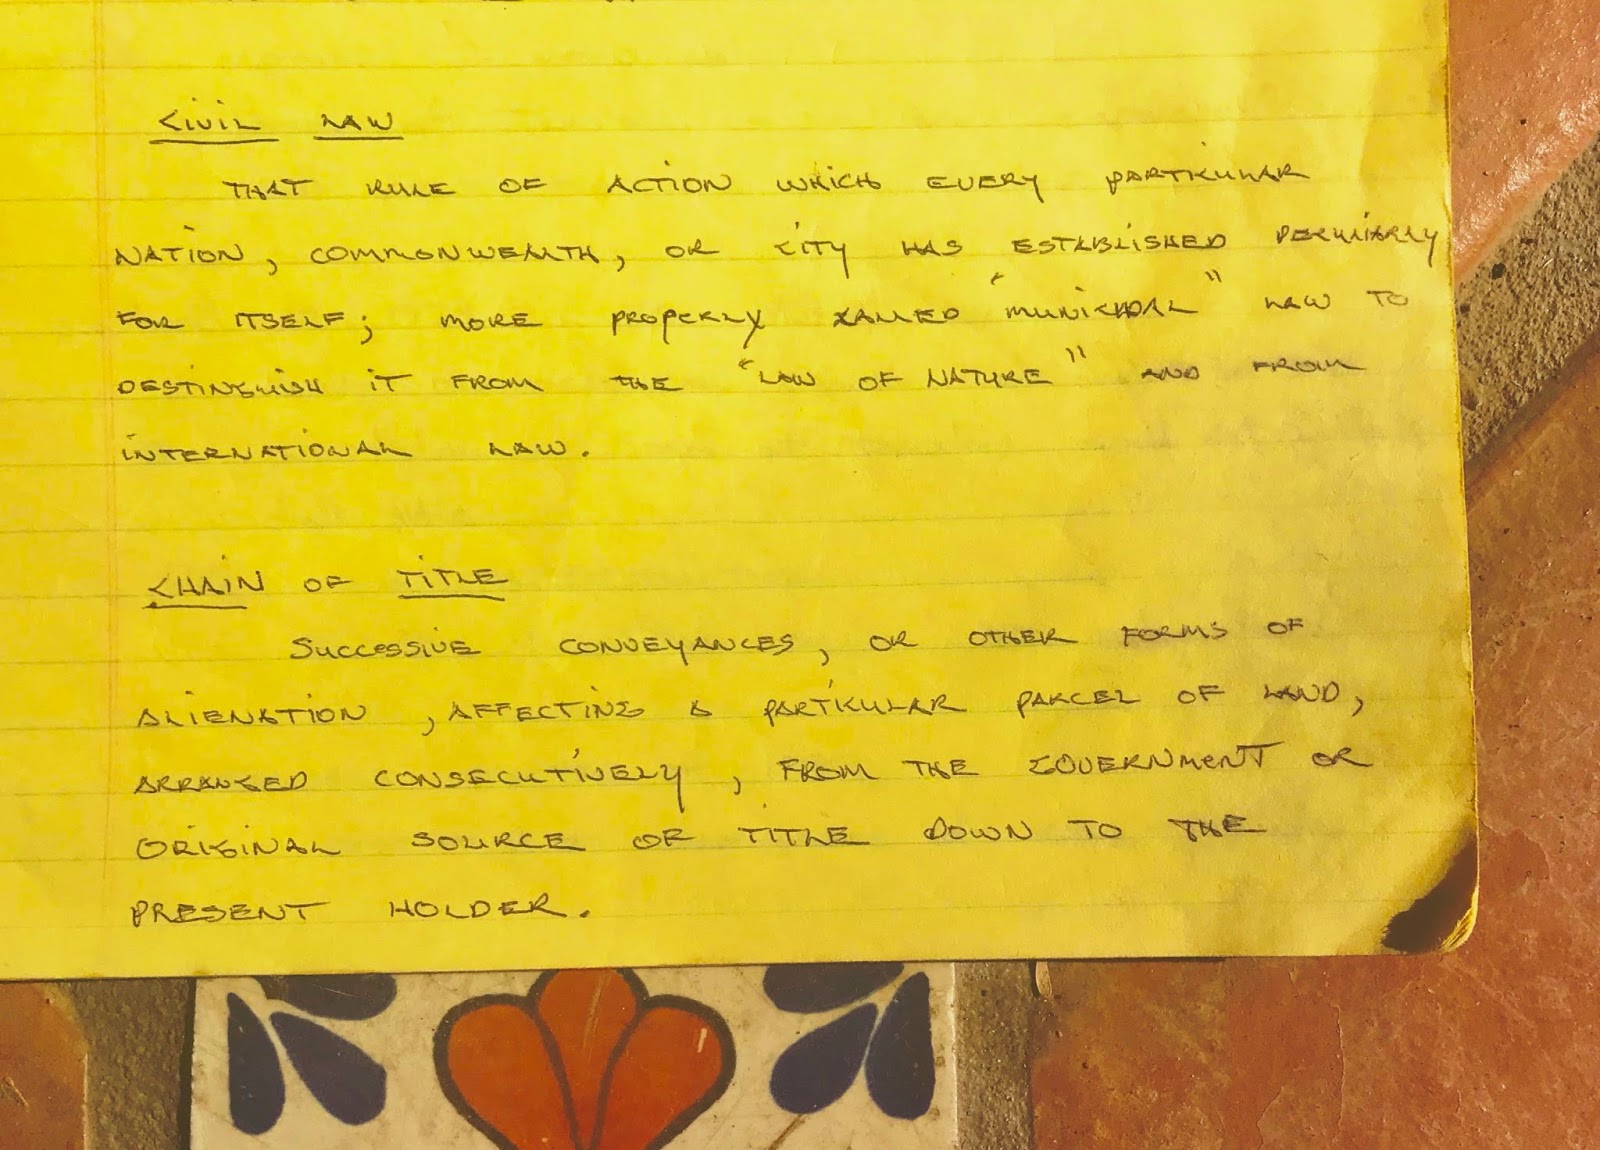 CIVIL LAW
THAT RULE OF ACTION WHICH EVERY PARTICULAR
NATION, COMMONWEALTH, OR CITY HAS ESTABLISHED PECULIARLY
FOR ITSELF; MORE PROPERLY CALLED "MUNICIPAL" LAW TO
DISTINGUISH IT FROM THE "LAW OF NATURE" AND FROM
INTERNATIONAL LAW.
CHAIN OF TITLE
SUCCESSIVE CONVEYANCES, OR OTHER FORMS OF
ALIENATION, AFFECTING A PARTICULAR PARCEL OF LAND,
ARRANGED CONSECUTIVELY, FROM THE GOVERNMENT OR
ORIGINAL SOURCE OF TITLE DOWN TO THE
PRESENT HOLDER.